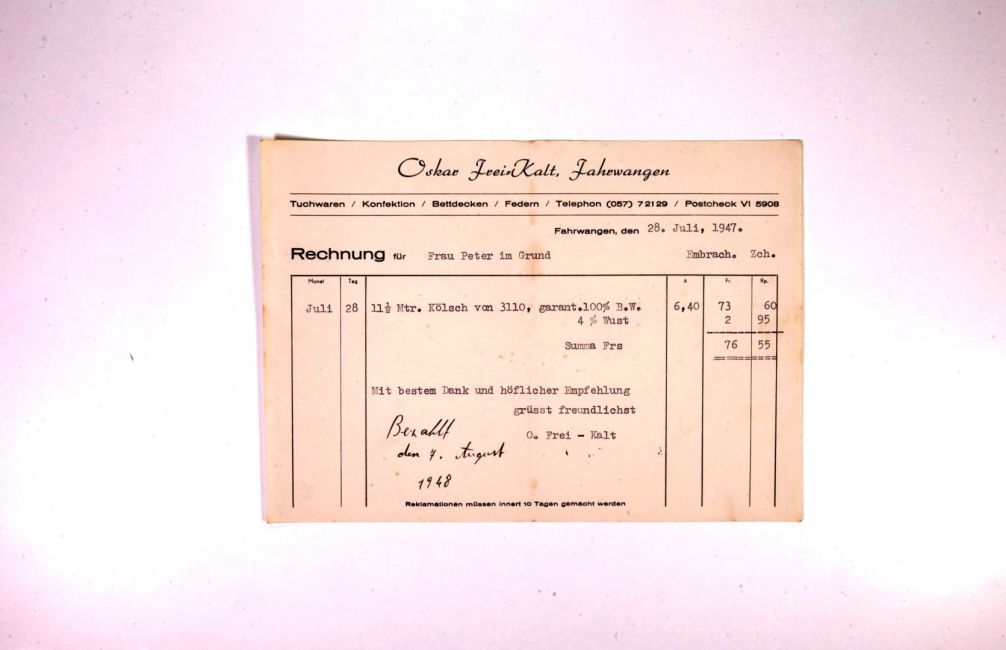 Oskar Frei-Kalt, Fahrwangen
Tuchwaren / Konfektion / Bettdecken / Federn / Telephon (057) 7 21 29 / Postcheck VI 5908
Fahrwangen, den 28. Juli, 1947.
Rechnung für Frau Peter im Grund Embrach. Zch.
Monat Tag à Fr. Rp.
Juli 28 11½ Mtr. Kölsch von 3110, garant.100% B.W. 6,40 73 60
4 % Wust 2 95
Summa Frs 76 55
Mit bestem Dank und höflicher Empfehlung
grüsst freundlichst
O. Frei - Kalt
Bezahlt
den 4. August
1948
Reklamationen müssen innert 10 Tagen gemacht werden